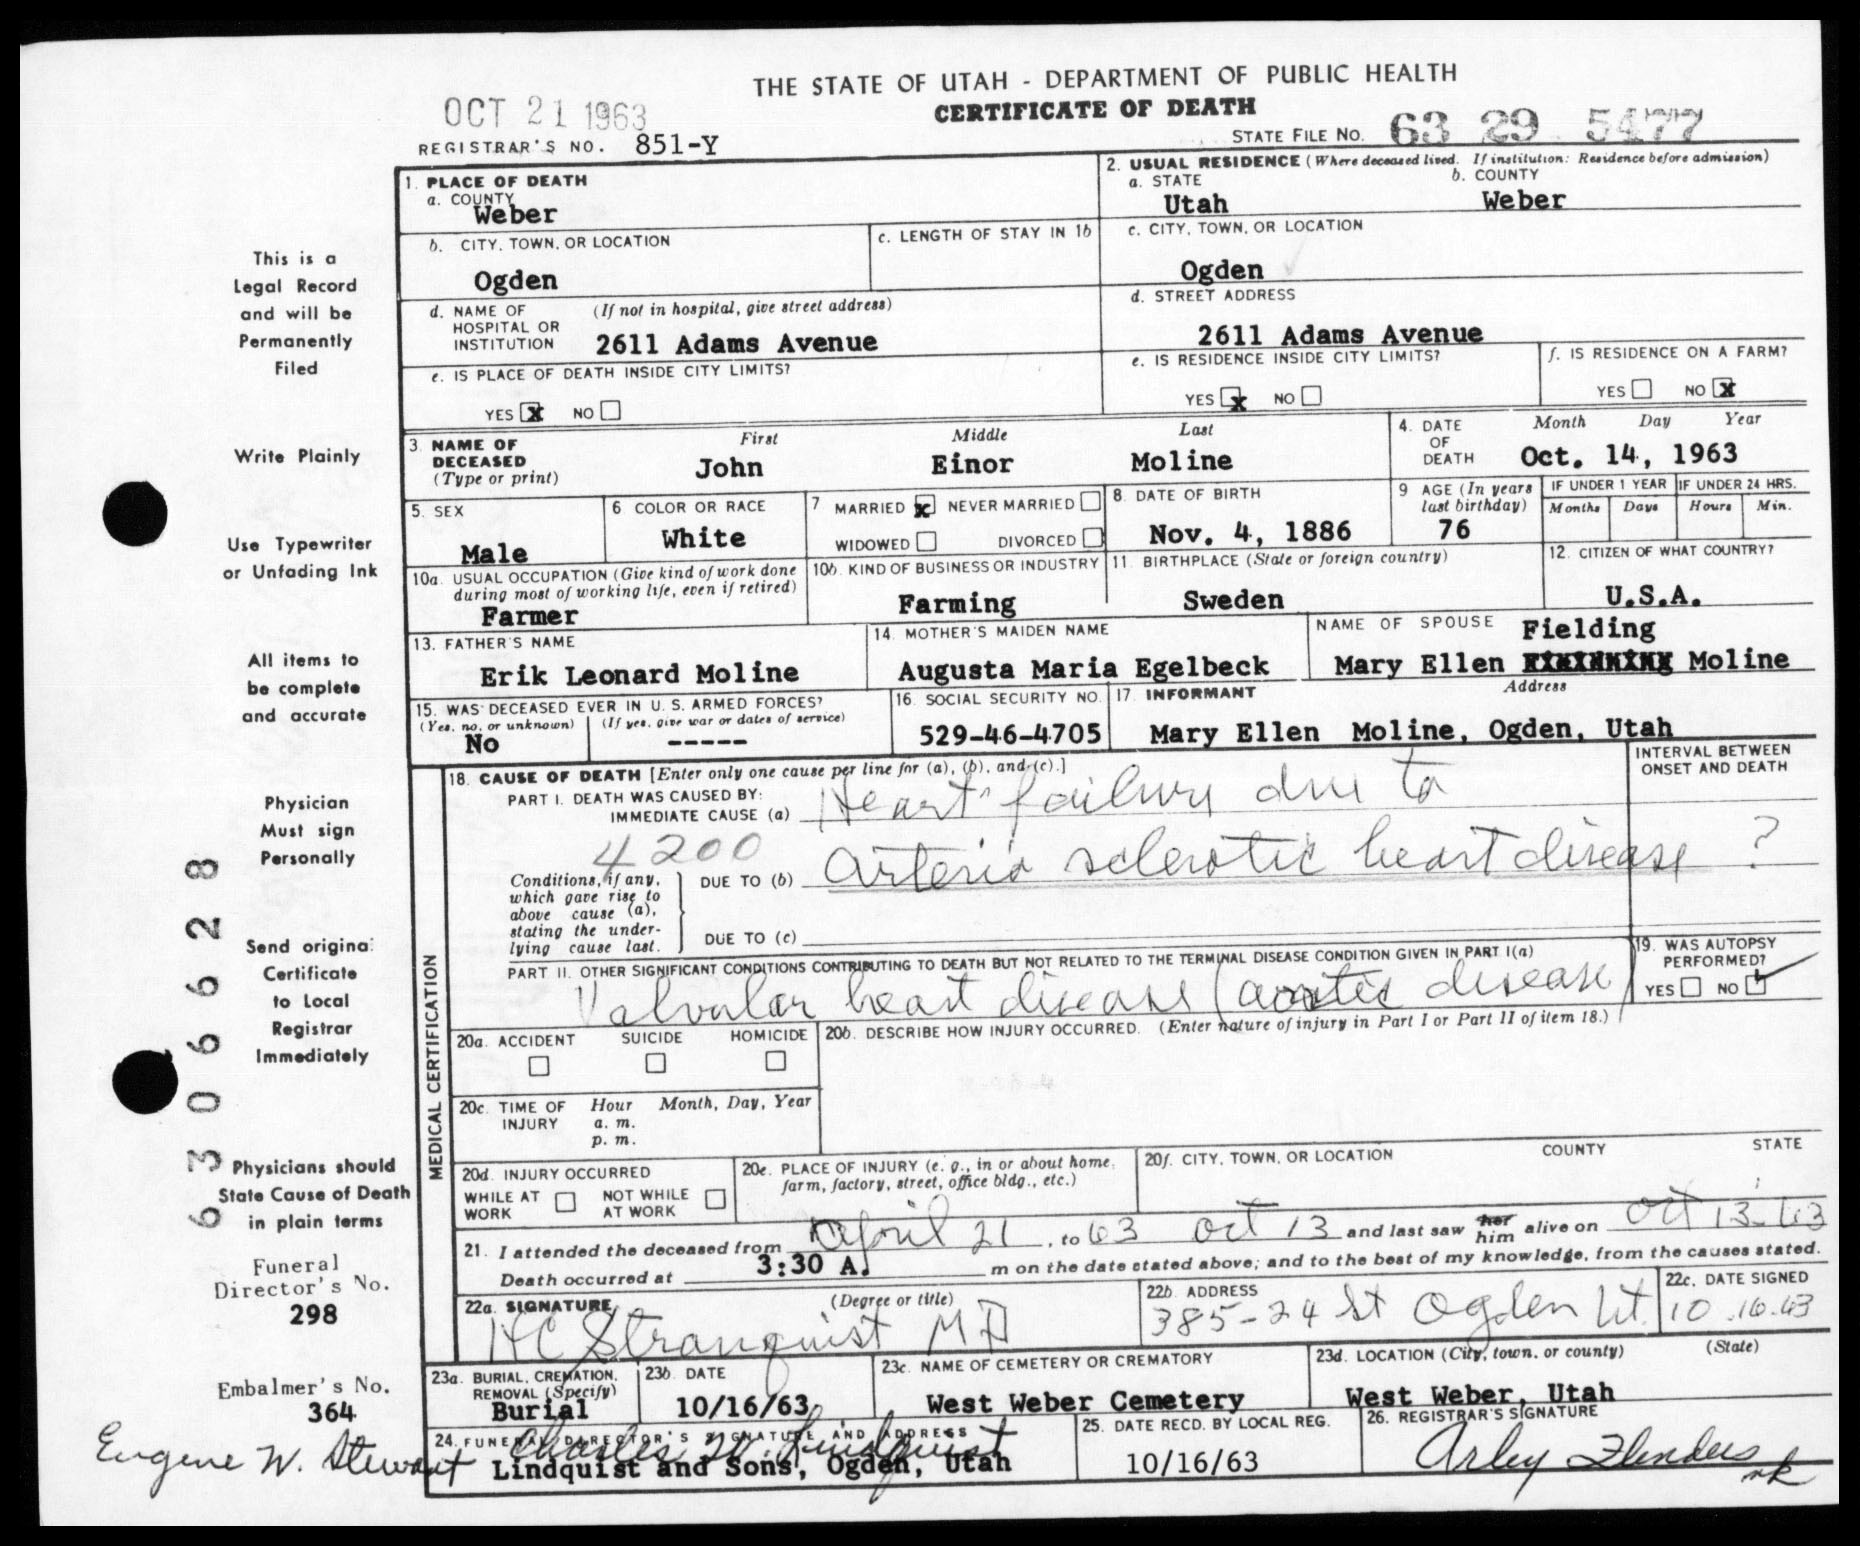 THE STATE OF UTAH - DEPARTMENT OF PUBLIC HEALTH
CERTIFICATE OF DEATH
OCT 21 1963
REGISTRAR'S NO. 851-Y
STATE FILE NO. 63 29 5477
1. PLACE OF DEATH
a. COUNTY
Weber
2. USUAL RESIDENCE (Where deceased lived. If institution: Residence before admission)
a. STATE b. COUNTY
Utah Weber
b. CITY, TOWN, OR LOCATION
Ogden
c. LENGTH OF STAY IN 1b
c. CITY, TOWN, OR LOCATION
Ogden
d. NAME OF HOSPITAL OR INSTITUTION (If not in hospital, give street address)
2611 Adams Avenue
d. STREET ADDRESS
2611 Adams Avenue
e. IS PLACE OF DEATH INSIDE CITY LIMITS?
YES X NO
e. IS RESIDENCE INSIDE CITY LIMITS?
YES X NO
f. IS RESIDENCE ON A FARM?
YES NO X
3. NAME OF DECEASED (Type or print)
First Middle Last
John Einor Moline
4. DATE OF DEATH
Month Day Year
Oct. 14, 1963
5. SEX
Male
6 COLOR OR RACE
White
7 MARRIED X NEVER MARRIED
WIDOWED DIVORCED
8. DATE OF BIRTH
Nov. 4, 1886
9 AGE (In years last birthday)
76
IF UNDER 1 YEAR
Months Days
IF UNDER 24 HRS.
Hours Min.
10a. USUAL OCCUPATION (Give kind of work done during most of working life, even if retired)
Farmer
10b. KIND OF BUSINESS OR INDUSTRY
Farming
11. BIRTHPLACE (State or foreign country)
Sweden
12. CITIZEN OF WHAT COUNTRY?
U.S.A.
13. FATHER'S NAME
Erik Leonard Moline
14. MOTHER'S MAIDEN NAME
Augusta Maria Egelbeck
NAME OF SPOUSE Fielding
Mary Ellen Moline
15. WAS DECEASED EVER IN U. S. ARMED FORCES?
(Yes, no, or unknown) (If yes, give war or dates of service)
No -----
16. SOCIAL SECURITY NO.
529-46-4705
17. INFORMANT Address
Mary Ellen Moline, Ogden, Utah
MEDICAL CERTIFICATION
18. CAUSE OF DEATH [Enter only one cause per line for (a), (b), and (c).]
INTERVAL BETWEEN ONSET AND DEATH
PART I. DEATH WAS CAUSED BY:
IMMEDIATE CAUSE (a) Heart failure due to
4200
Conditions, if any, which gave rise to above cause (a), stating the underlying cause last.
DUE TO (b) Arterio sclerotic heart disease ?
DUE TO (c)
PART II. OTHER SIGNIFICANT CONDITIONS CONTRIBUTING TO DEATH BUT NOT RELATED TO THE TERMINAL DISEASE CONDITION GIVEN IN PART I(a)
Valvular heart disease (aortic disease)
19. WAS AUTOPSY PERFORMED?
YES NO ✓
20a. ACCIDENT SUICIDE HOMICIDE
20b. DESCRIBE HOW INJURY OCCURRED. (Enter nature of injury in Part I or Part II of item 18.)
20c. TIME OF INJURY
Hour Month, Day, Year
a. m.
p. m.
20d. INJURY OCCURRED
WHILE AT WORK NOT WHILE AT WORK
20e. PLACE OF INJURY (e. g., in or about home, farm, factory, street, office bldg., etc.)
20f. CITY, TOWN, OR LOCATION COUNTY STATE
21. I attended the deceased from April 21, to 63 Oct 13 and last saw her him alive on Oct 13-63
Death occurred at 3:30 A. m on the date stated above; and to the best of my knowledge, from the causes stated.
22a. SIGNATURE (Degree or title)
HC Stranquist MD
22b. ADDRESS
385-24 St Ogden Ut.
22c. DATE SIGNED
10.16.63
23a. BURIAL, CREMATION, REMOVAL (Specify)
Burial
23b. DATE
10/16/63
23c. NAME OF CEMETERY OR CREMATORY
West Weber Cemetery
23d. LOCATION (City, town, or county) (State)
West Weber, Utah
24. FUNERAL DIRECTOR'S SIGNATURE AND ADDRESS
Charles W. Lindquist
Lindquist and Sons, Ogden, Utah
25. DATE RECD. BY LOCAL REG.
10/16/63
26. REGISTRAR'S SIGNATURE
Arley Flinders
nk
This is a
Legal Record
and will be
Permanently
Filed
Write Plainly
Use Typewriter
or Unfading Ink
All items to
be complete
and accurate
Physician
Must sign
Personally
Send original
Certificate
to Local
Registrar
Immediately
Physicians should
State Cause of Death
in plain terms
Funeral
Director's No.
298
Embalmer's No.
364
Eugene W. Stewart
63 0 6628